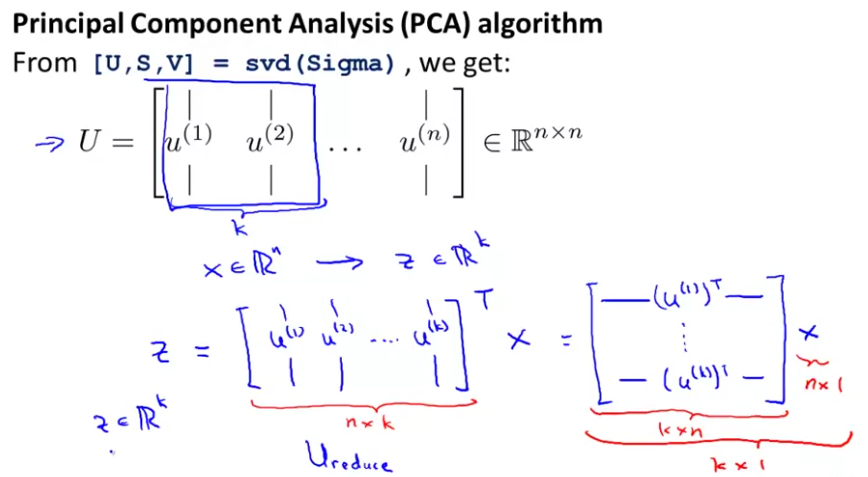 Principal Component Analysis (PCA) algorithm
From [U,S,V] = svd(Sigma) , we get:
→ U = [ | | | ; u^(1) u^(2) ... u^(n) ; | | | ] ∈ ℝ^{n×n}
k
x ∈ ℝ^n → z ∈ ℝ^k
z = [ | | | ; u^(1) u^(2) .... u^(k) ; | | | ]^T x = [ — (u^(1))^T — ; ⋮ ; — (u^(k))^T — ] x
n × 1
z ∈ ℝ^k
n × k
k × n
U reduce
k × 1